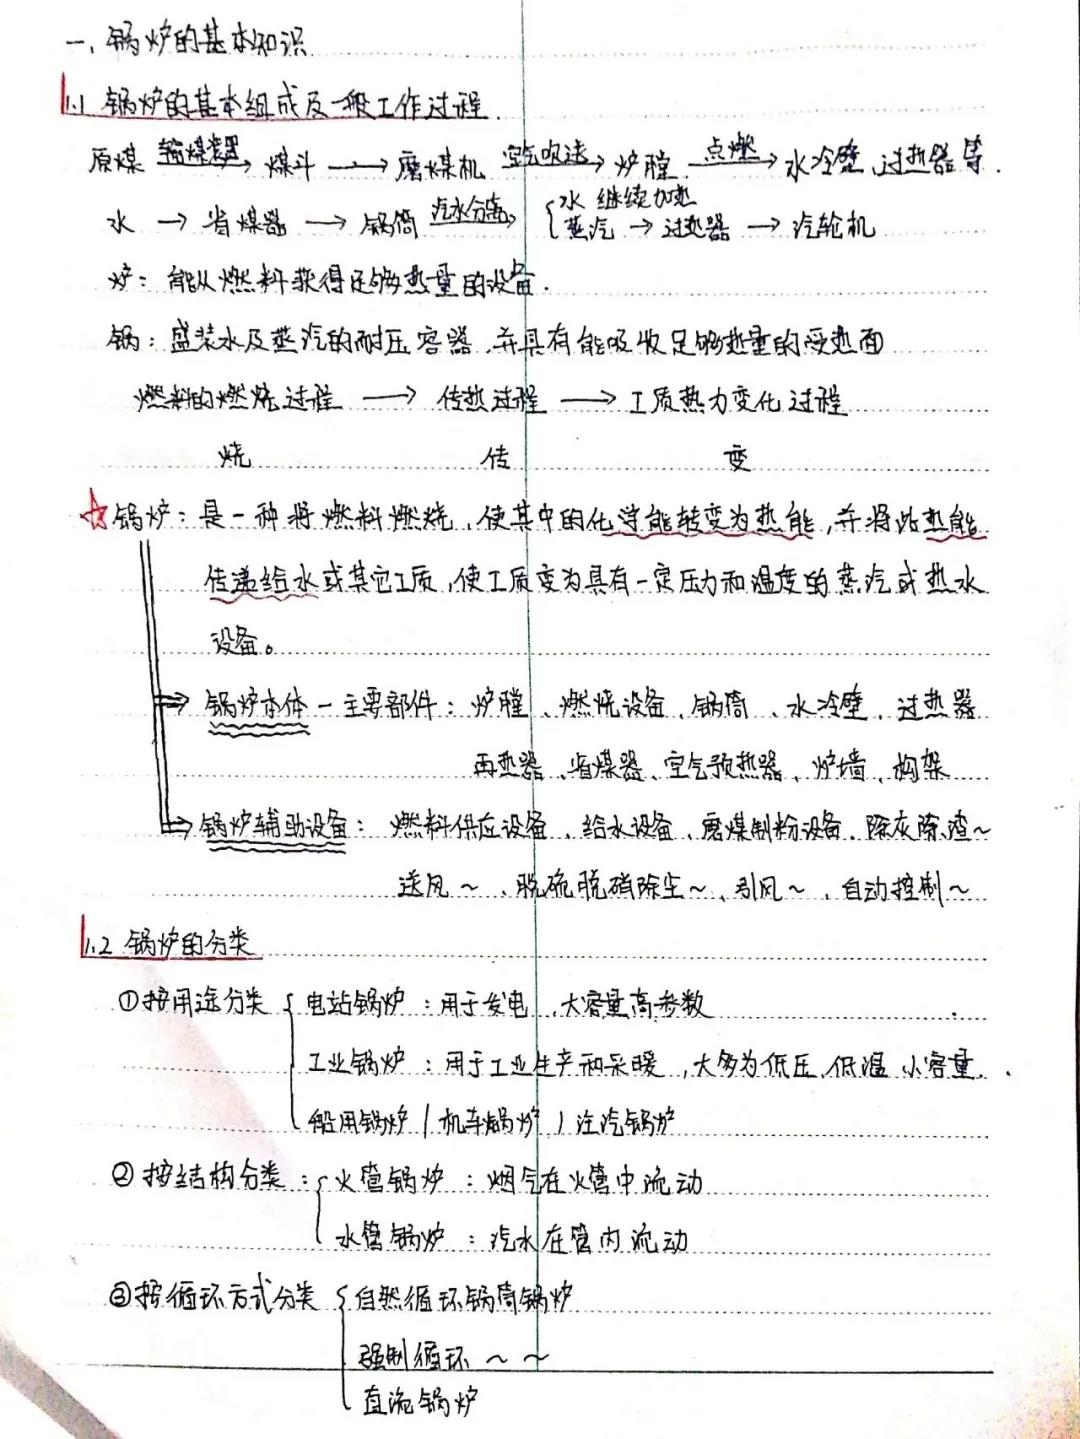 一、锅炉的基本知识
1.1 锅炉的基本组成及一般工作过程
原煤 输煤装置→ 煤斗 → 磨煤机 空气吹送→ 炉膛 点燃→ 水冷壁、过热器等.
水 → 省煤器 → 锅筒 汽水分离→ { 水 继续加热
蒸汽 → 过热器 → 汽轮机
炉：能从燃料获得足够热量的设备.
锅：盛装水及蒸汽的耐压容器,并具有能吸收足够热量的受热面
燃料的燃烧过程 → 传热过程 → 工质热力变化过程
烧 传 变
☆锅炉：是一种将燃料燃烧,使其中的化学能转变为热能,并将此热能
传递给水或其它工质,使工质变为具有一定压力和温度的蒸汽或热水
设备。
⇒ 锅炉本体 — 主要部件：炉膛、燃烧设备、锅筒、水冷壁、过热器
再热器、省煤器、空气预热器、炉墙、构架
⇒ 锅炉辅助设备：燃料供应设备、给水设备、磨煤制粉设备、除灰除渣~
送风~、脱硫脱硝除尘~、引风~、自动控制~
1.2 锅炉的分类
①按用途分类 { 电站锅炉：用于发电,大容量高参数
工业锅炉：用于工业生产和采暖,大多为低压、低温 小容量.
船用锅炉 / 机车锅炉 / 注汽锅炉
②按结构分类：{ 火管锅炉：烟气在火管中流动
水管锅炉：汽水在管内流动
③按循环方式分类 { 自然循环锅筒锅炉
强制循环 ~ ~
直流锅炉